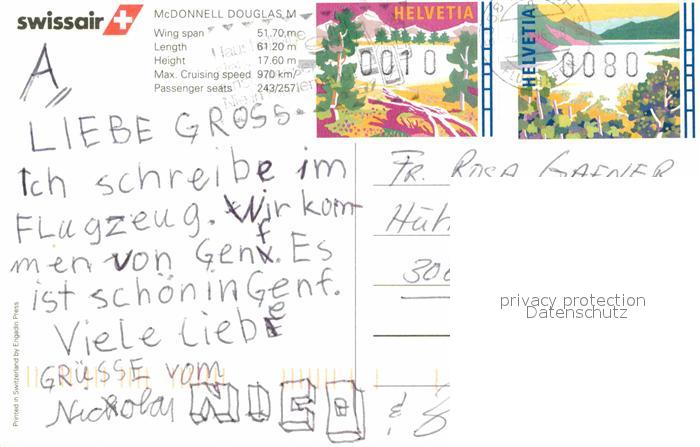 swissair
McDONNELL DOUGLAS M
Wing span 51.70 m
Length 61.20 m
Height 17.60 m
Max. Cruising speed 970 km/
Passenger seats 243/257
HELVETIA
0010
HELVETIA
0080
A
LIEBE GROSS-
Ich schreibe im
Flugzeug. Wir kom-
men von Genf. Es
ist schön in Genf.
Viele liebe
GRÜSSE vom
NICO
&
FR. ROSA
300
privacy protection
Datenschutz
Printed in Switzerland by Engadin Press